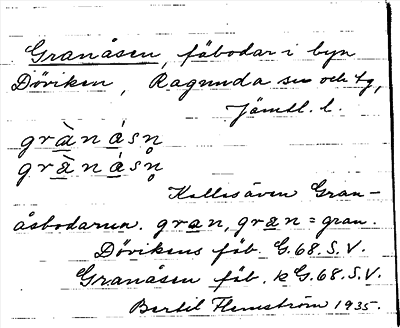 Granåsen, fäbodar i byn
Döviken, Ragunda sn och tg,
Jämtl. l.
gràn ásn̥
græ̀n ásn̥
Kallas även Gran-
åsbodarna. gran, græn = gran.
Dövikens fäb. G.68.S.V.
Granåsen fäb. k G.68.S.V.
Bertil Flemström 1935.